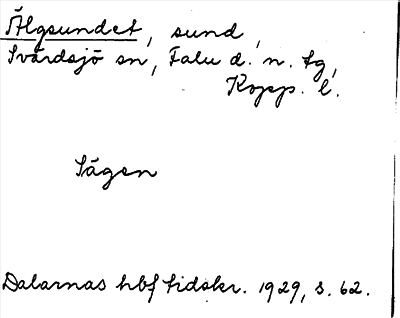 Älgsundet, sund,
Svärdsjö sn, Falu d. n. tg,
Kopp. l.
Sägen
Dalarnas hbf tidskr. 1929, s. 62.